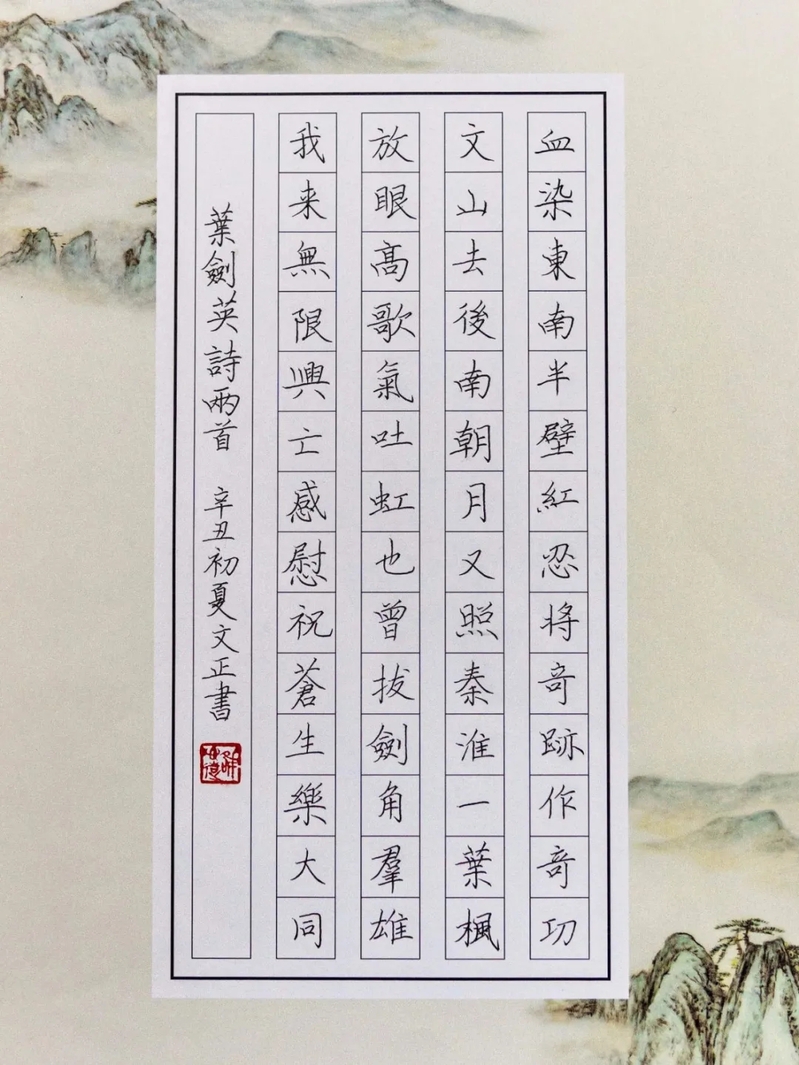 血染東南半壁紅忍将奇跡作奇功
文山去後南朝月又照秦淮一葉楓
放眼高歌氣吐虹也曾拔劍角羣雄
我来無限興亡感慰祝蒼生樂大同
葉劍英詩兩首 辛丑初夏文正書